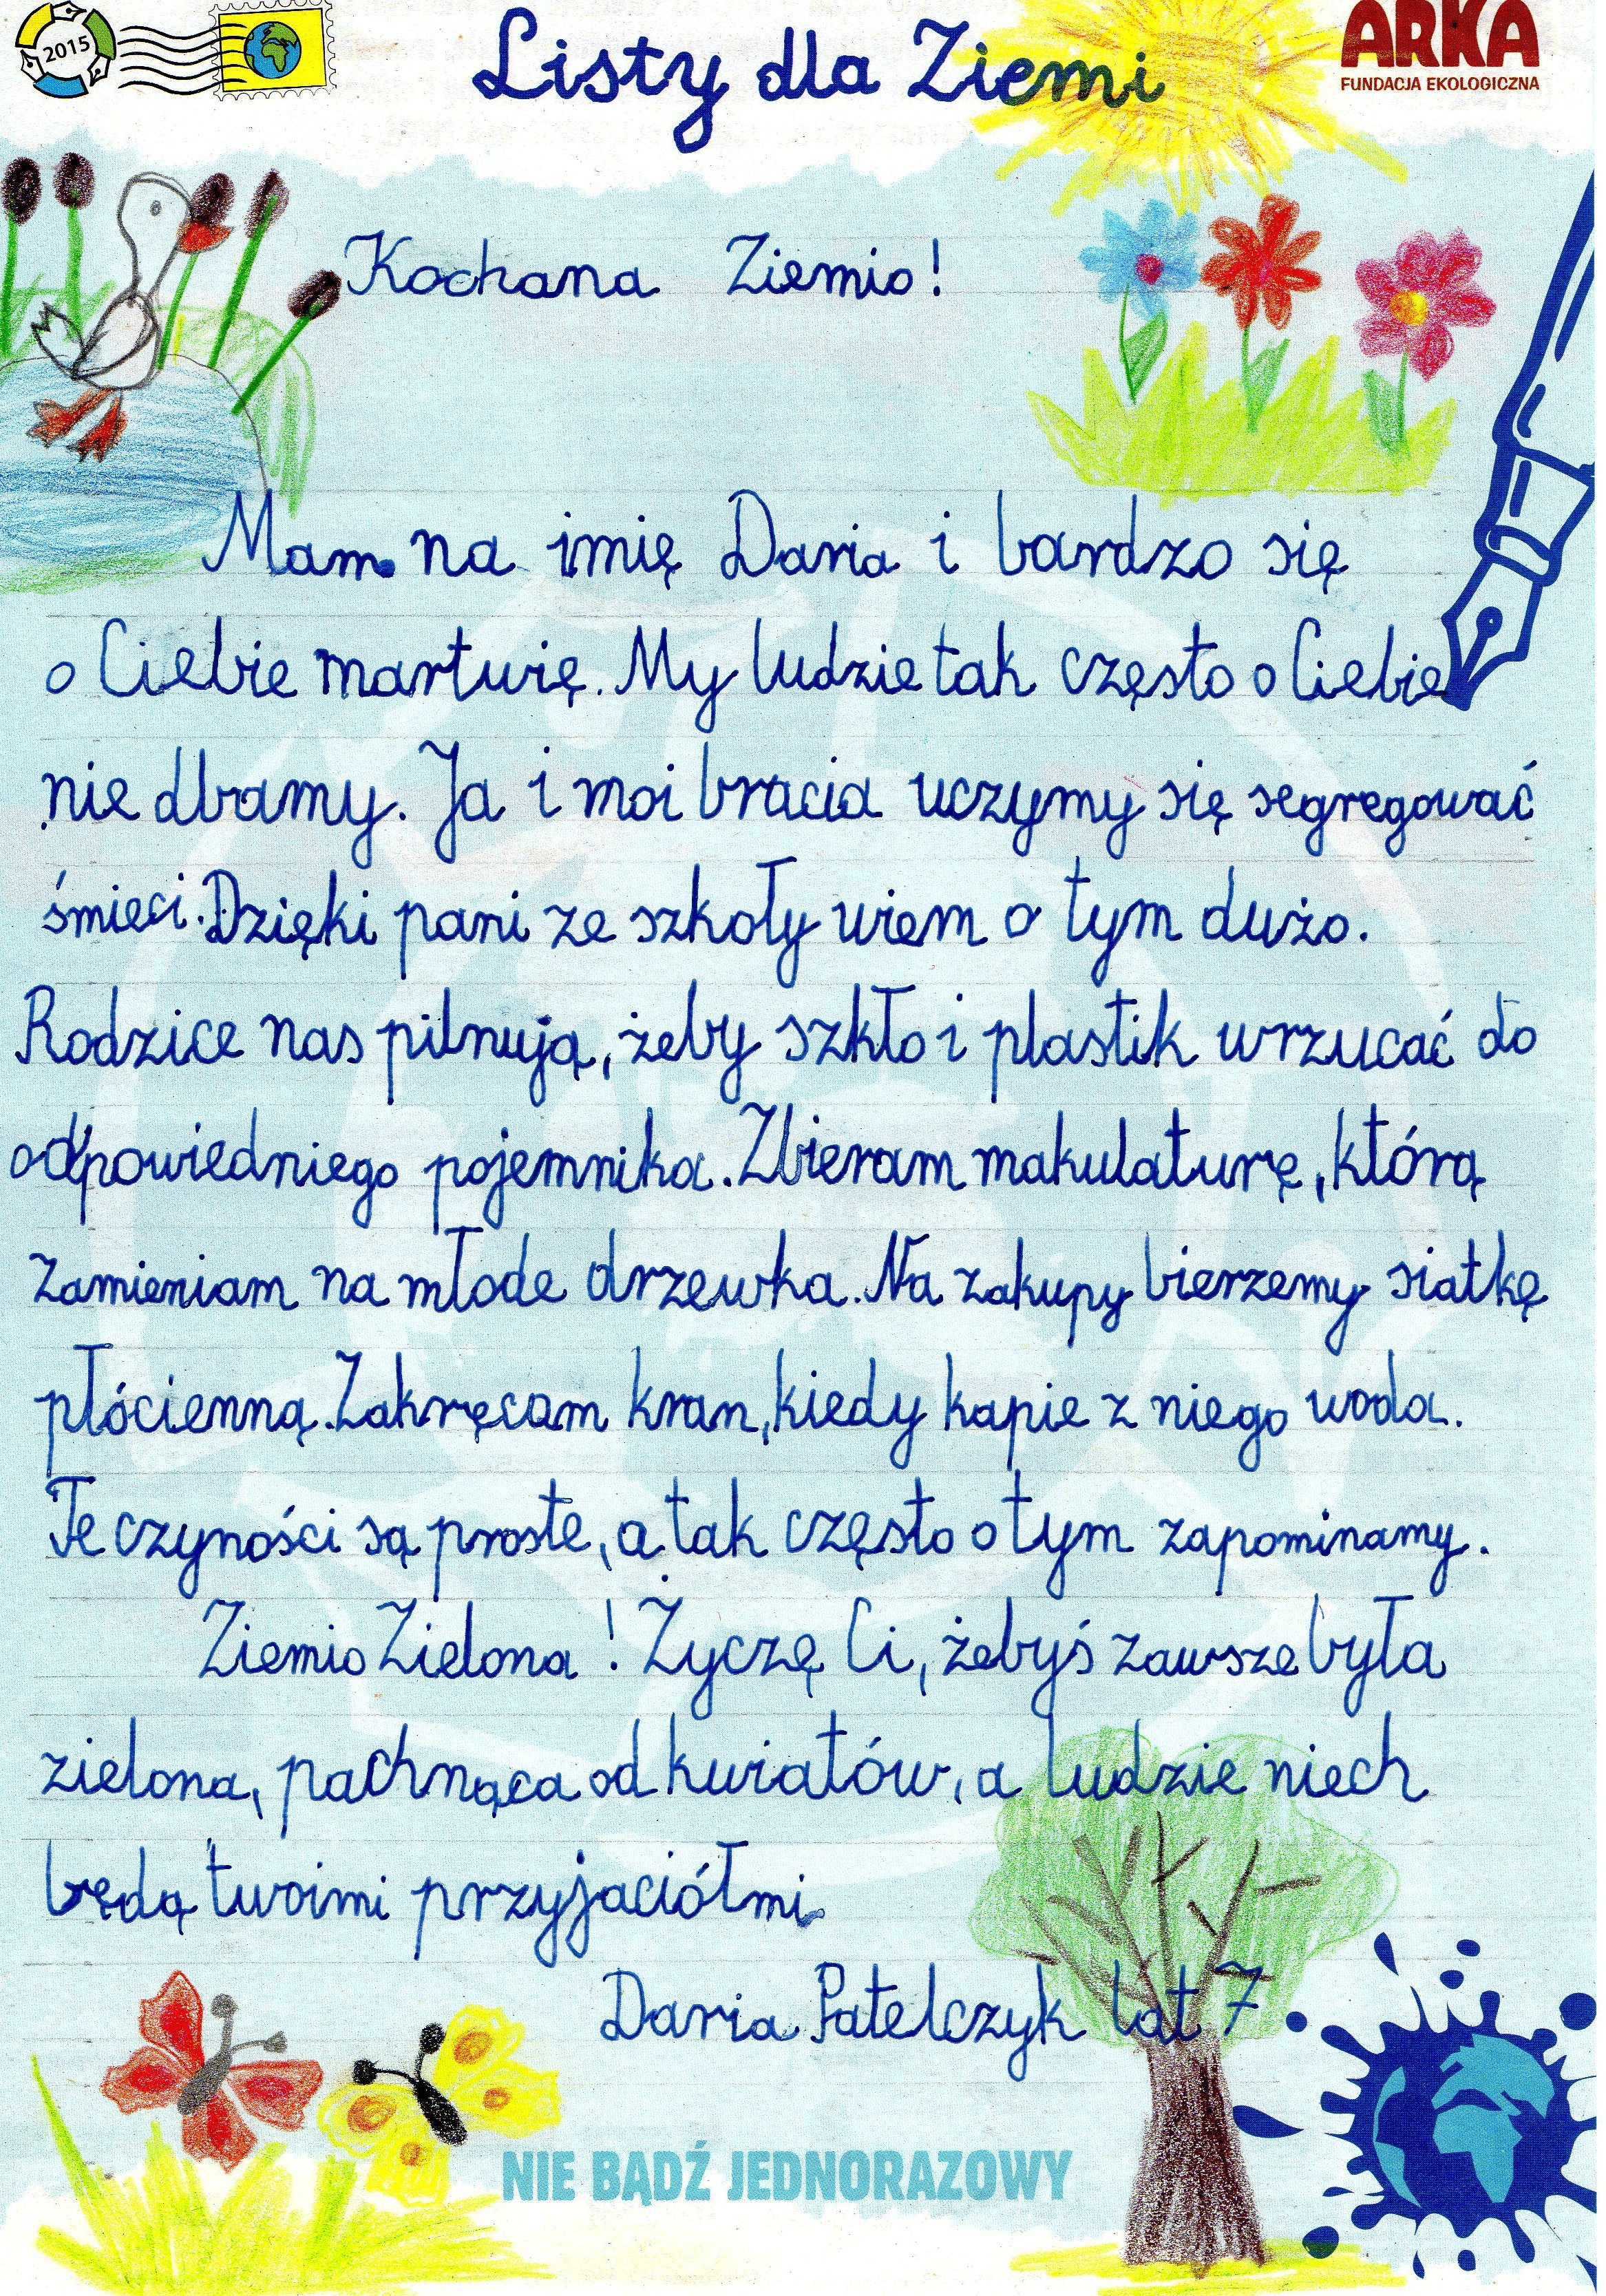 2015
Listy dla Ziemi
ARKA
FUNDACJA EKOLOGICZNA
Kochana Ziemio!
Mam na imię Daria i bardzo się
o Ciebie martwię. My ludzie tak często o Ciebie
nie dbamy. Ja i moi bracia uczymy się segregować
śmieci. Dzięki pani ze szkoły wiem o tym dużo.
Rodzice nas pilnują, żeby szkło i plastik wrzucać do
odpowiedniego pojemnika. Zbieram makulaturę, którą
zamieniam na młode drzewka. Na zakupy bierzemy siatkę
płócienną. Zakręcam kran, kiedy kapie z niego woda.
Te czyności są proste, a tak często o tym zapominamy.
Ziemio Zielona! Życzę Ci, żebyś zawsze była
zielona, pachnąca od kwiatów, a ludzie niech
będą twoimi przyjaciółmi
Daria Patelczyk lat 7
NIE BĄDŹ JEDNORAZOWY